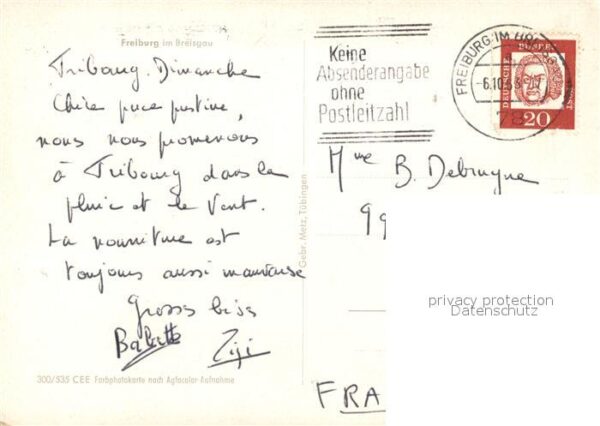 Freiburg im Breisgau
Fribourg. Dimanche
Chère puce
nous nous promenons
à Fribourg dans la
pluie et le vent.
La nourriture est
toujours aussi mauvaise
Grosses bises
Babette Zizi
300/535 CEE Farbphotokarte nach Agfacolor-Aufnahme
Gebr. Metz, Tübingen
Keine
Absenderangabe
ohne
Postleitzahl
FREIBURG IM
-6.10.63
78
DEUTSCHE
BUNDES
POST
20
Mme B. Debruyne
99
privacy protection
Datenschutz
FRA